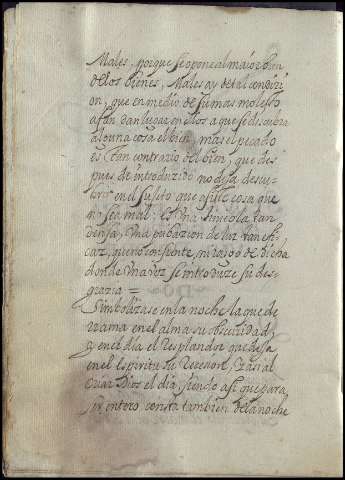 Males, porque se opone al maior bien
de los bienes, Males ay de tal condizi
on, que en medio de su mas molesto
afan dan lugar en ellos a que se descubra
alguna cosa el bien, mas el pecado
es tan contrario del bien, que des
pues de introduzido no deja descu
brir en el sujeto que aflije cosa que
no sea mal: es Una tan
densa, Una pribazion de luz tan efi
caz, que no consiente, ni rasgo de dicha
donde Una vez se introduze su des
grazia =
Simbolizase en la noche la que de
rrama en el alma su obscuridad,
y en el dia el Resplandor que deja
en el espiritu su , y asi al
criar Dios el dia, siendo asi que para
ser entero consta tambien de la noche